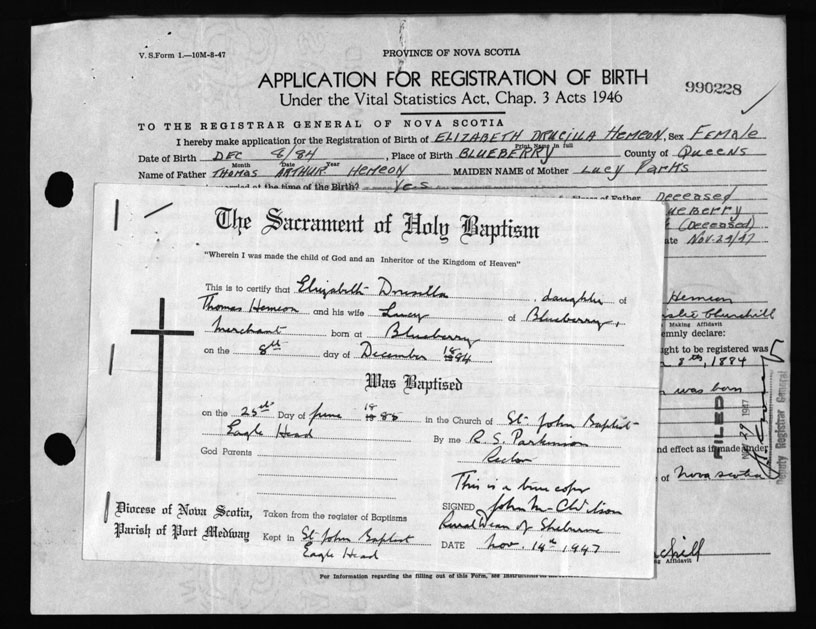 V. S. Form 1.—10M-8-47
PROVINCE OF NOVA SCOTIA
APPLICATION FOR REGISTRATION OF BIRTH
990228
Under the Vital Statistics Act, Chap. 3 Acts 1946
TO THE REGISTRAR GENERAL OF NOVA SCOTIA
I hereby make application for the Registration of Birth of ELIZABETH DRUCILLA HEMEON, Sex FEMALE
Print Name in full
Date of Birth DEC 8/84, Place of Birth BLUEBERRY County of Queens
Month Date Year
Name of Father THOMAS ARTHUR HEMEON MAIDEN NAME of Mother Lucy Parks
at the time of the Birth? Yes of Father Deceased
(Deceased)
Nov. 29/47
The Sacrament of Holy Baptism
"Wherein I was made the child of God and an Inheritor of the Kingdom of Heaven"
This is to certify that Elizabeth Drusilla daughter of
Thomas Hemeon and his wife Lucy of Blueberry,
Merchant born at Blueberry
on the 8th day of December 1884
Was Baptised
on the 25th Day of June 18 in the Church of St. John Baptist
Eagle Head By me R. S. Parkinson
Rector
God Parents
This is a true copy
SIGNED John M.
Rural Dean of Shelburne
DATE Nov. 14th, 1947
Diocese of Nova Scotia,
Parish of Port Medway
Taken from the register of Baptisms
Kept in St. John Baptist
Eagle Head
Hemeon
Churchill
Making Affidavit
declare:
ought to be registered was
8th, 1884
was born
FILED
NOV 29 1947
Deputy Registrar General
and effect as if made under
of Nova Scotia
Affidavit
For Information regarding the filling out of this Form, see